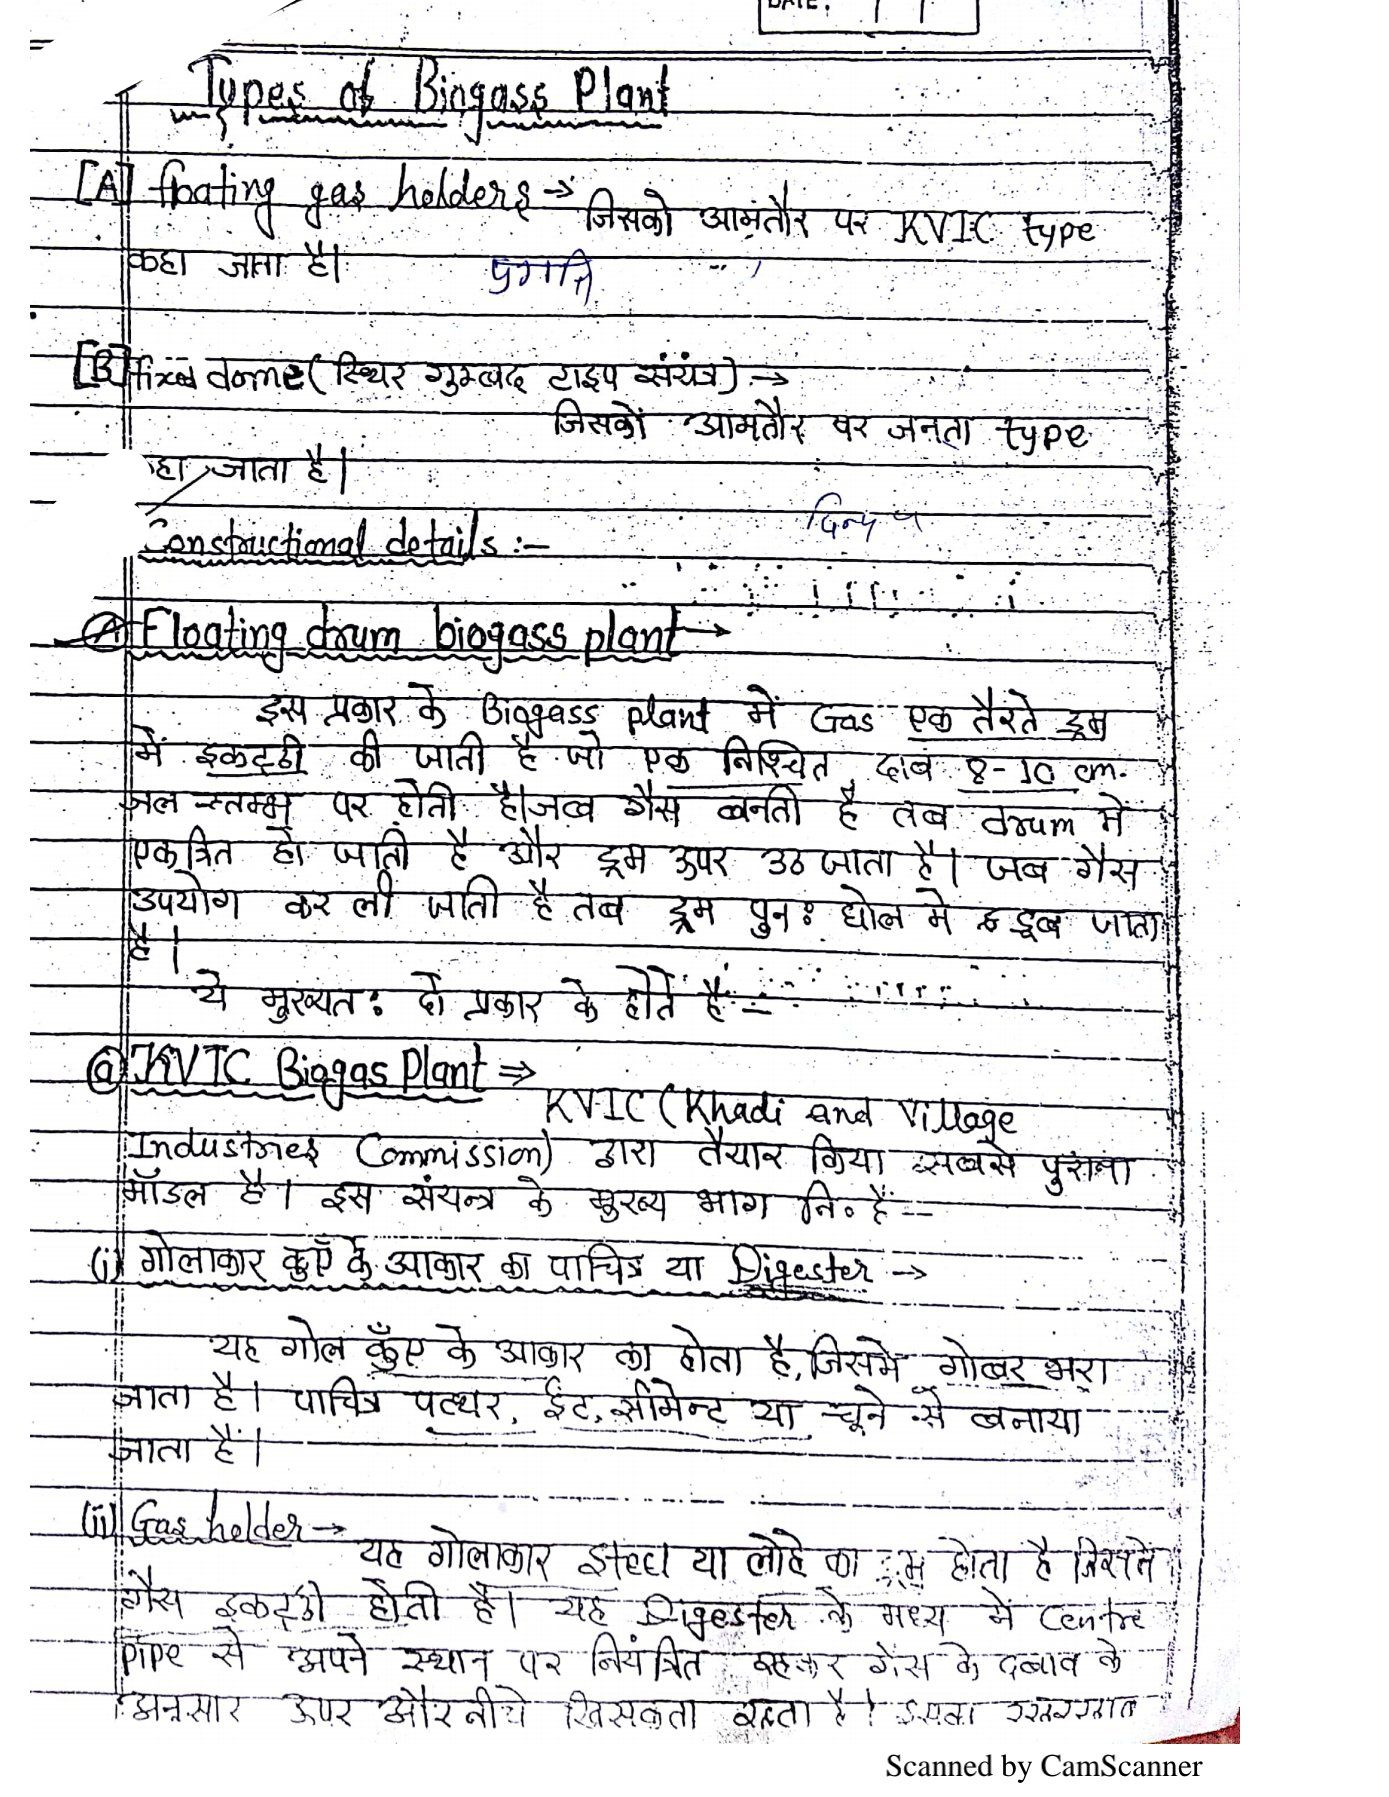 DATE:
Types of Biogass Plant
[A] floating gas holders → जिसको आमतौर पर KVIC type
कहा जाता है।
प्रगति
[B] fixed dome (स्थिर गुम्बद टाइप संयंत्र) →
जिसको आमतौर पर जनता type
हा जाता है।
Constructional details :-
(A) Floating drum biogass plant →
इस प्रकार के Biogass plant में Gas एक तैरते ड्रम
में इकट्ठी की जाती है जो एक निश्चित दाब 8-10 cm.
जल स्तम्भ पर होती है। जब गैस बनती है तब drum मे
एकत्रित हो जाती है और ड्रम ऊपर उठ जाता है। जब गैस
उपयोग कर ली जाती है तब ड्रम पुनः घोल मे डूब जाता
है।
ये मुख्यतः दो प्रकार के होते है :-
(a) KVIC Biogas Plant ⇒
KVIC (Khadi and Village
Industries Commission) द्वारा तैयार किया सबसे पुराना
मॉडल है। इस संयन्त्र के मुख्य भाग नि० है --
(i) गोलाकार कुएँ के आकार का पाचित्र या Digester →
यह गोल कुँए के आकार का होता है, जिसमे गोबर भरा
जाता है। पाचित्र पत्थर, ईंट, सीमेन्ट या चूने से बनाया
जाता है।
(ii) Gas holder →
यह गोलाकार steel या लोहे का ड्रम होता है जिसमे
गैस इकट्ठी होती है। यह Digester के मध्य में Centre
pipe से अपने स्थान पर नियंत्रित रहकर गैस के दबाव के
अनुसार ऊपर और नीचे खिसकता रहता है। इसका
Scanned by CamScanner